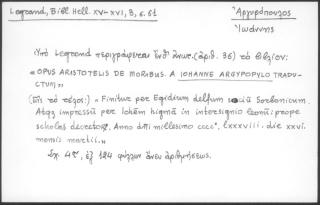 Legrand, Bibl Hell. XV-XVI, 3, σ. 61
Ἀργυρόπουλος
Ἰωάννης
Ὑπὸ Legrand περιγράφεται ὑπ' ἀριθ. (ἀριθ. 36) τὸ βιβλίον:
«OPUS ARISTOTELIS DE MORIBUS. A IOHANNE ARGYPOPYLO TRADU-
CTUM»
(Εἰς τὸ τέλος:) «Finitur per Egidium delfum sociū Sorbonicum.
Atqȝ impressū per Iohēm higmā in intersignio leonū: prope
scholas decretorȝ. Anno dñi millesimo cccc°. lxxxviii. die xxvi.
mensis martii.»
Σχ. 4ον, ἐξ 124 φύλλων ἄνευ ἀριθμήσεως.